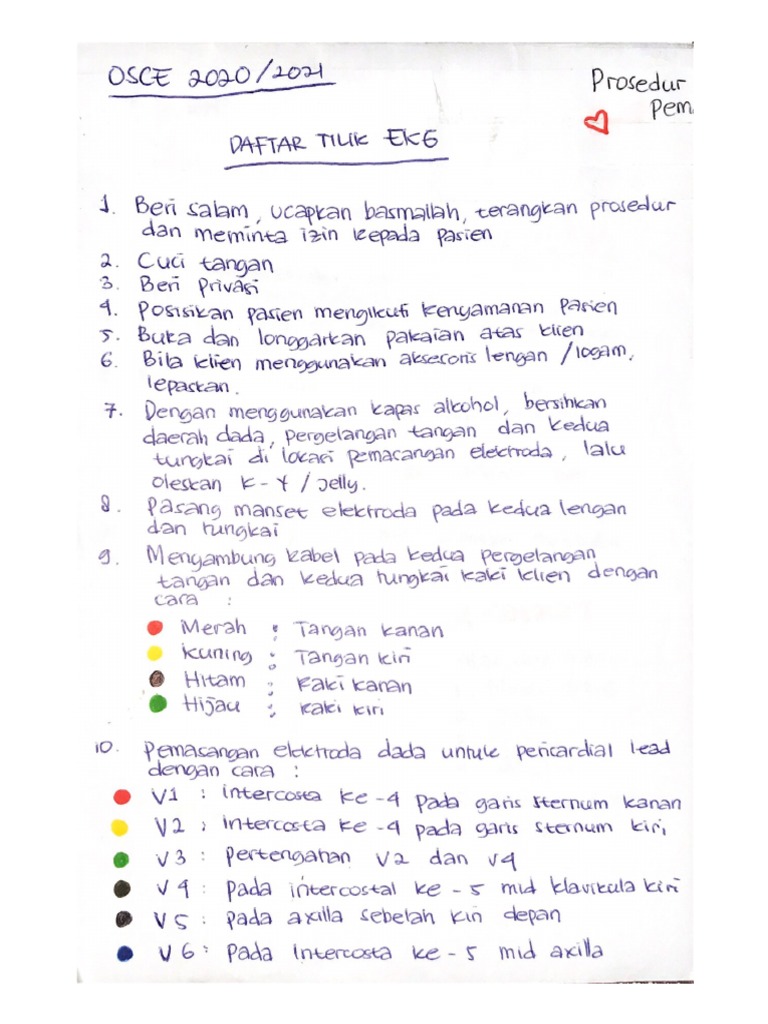 OSCE 2020/2021
Prosedur
Pem
DAFTAR TILIK EKG
1. Beri salam, ucapkan basmallah, terangkan prosedur
dan meminta izin kepada pasien
2. Cuci tangan
3. Beri Privasi
4. Posisikan pasien mengikuti kenyamanan pasien
5. Buka dan longgarkan pakaian atas klien
6. Bila klien menggunakan aksesoris lengan /logam,
lepaskan.
7. Dengan menggunakan kapas alkohol, bersihkan
daerah dada, pergelangan tangan dan kedua
tungkai di lokasi pemasangan elektroda, lalu
oleskan K-Y/Jelly.
8. Pasang manset elektroda pada kedua lengan
dan tungkai
9. Menyambung kabel pada kedua pergelangan
tangan dan kedua tungkai kaki klien dengan
cara :
Merah : Tangan kanan
Kuning : Tangan kiri
Hitam : Kaki kanan
Hijau : kaki kiri
10. Pemasangan elektroda dada untuk pericardial lead
dengan cara :
V1 : intercosta ke-4 pada garis sternum kanan
V2 : intercosta ke-4 pada garis sternum kiri
V3 : pertengahan V2 dan V4
V4 : pada intercostal ke-5 mid klavikula kiri
V5 : pada axilla sebelah kiri depan
V6 : Pada intercosta ke-5 mid axilla